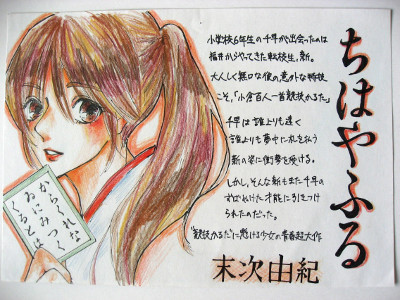 ちはやふる
小学校6年生の千早が出会ったのは
福井からやってきた転校生、新。
大人しく無口な彼の、意外な特技
こそ、「小倉百人一首競技かるた」
千早は誰よりも速く
誰よりも夢中に札を払う
新の姿に衝撃を受ける。
しかし、そんな新もまた千早の
ずばぬけた才能に引きつけ
られたのだった。
"競技かるた"に懸ける少女の青春超大作
末次由紀
からくれな
ゐにみつく
くるとは